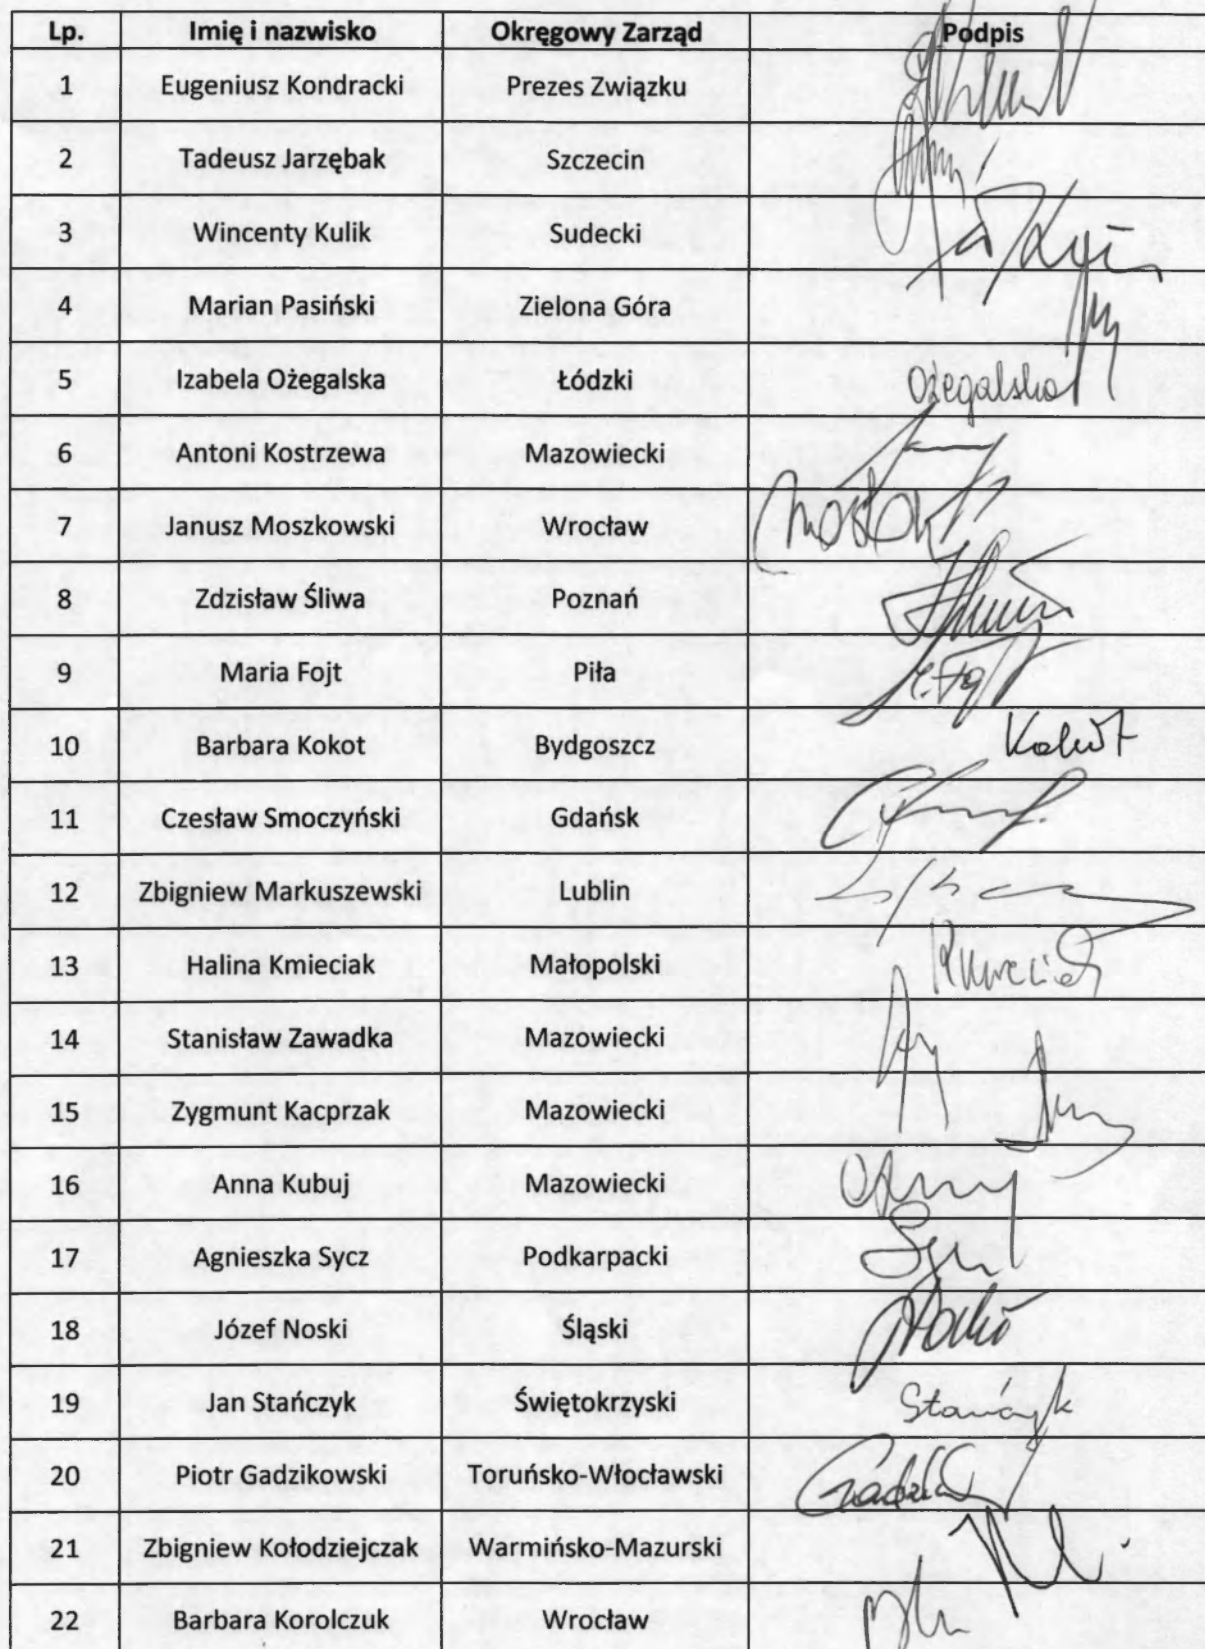 Lp. Imię i nazwisko Okręgowy Zarząd Podpis
1 Eugeniusz Kondracki Prezes Związku
2 Tadeusz Jarzębak Szczecin
3 Wincenty Kulik Sudecki
4 Marian Pasiński Zielona Góra
5 Izabela Ożegalska Łódzki Ożegalska
6 Antoni Kostrzewa Mazowiecki
7 Janusz Moszkowski Wrocław
8 Zdzisław Śliwa Poznań
9 Maria Fojt Piła
10 Barbara Kokot Bydgoszcz Kokot
11 Czesław Smoczyński Gdańsk
12 Zbigniew Markuszewski Lublin
13 Halina Kmieciak Małopolski
14 Stanisław Zawadka Mazowiecki
15 Zygmunt Kacprzak Mazowiecki
16 Anna Kubuj Mazowiecki
17 Agnieszka Sycz Podkarpacki
18 Józef Noski Śląski
19 Jan Stańczyk Świętokrzyski Stańczyk
20 Piotr Gadzikowski Toruńsko-Włocławski
21 Zbigniew Kołodziejczak Warmińsko-Mazurski
22 Barbara Korolczuk Wrocław